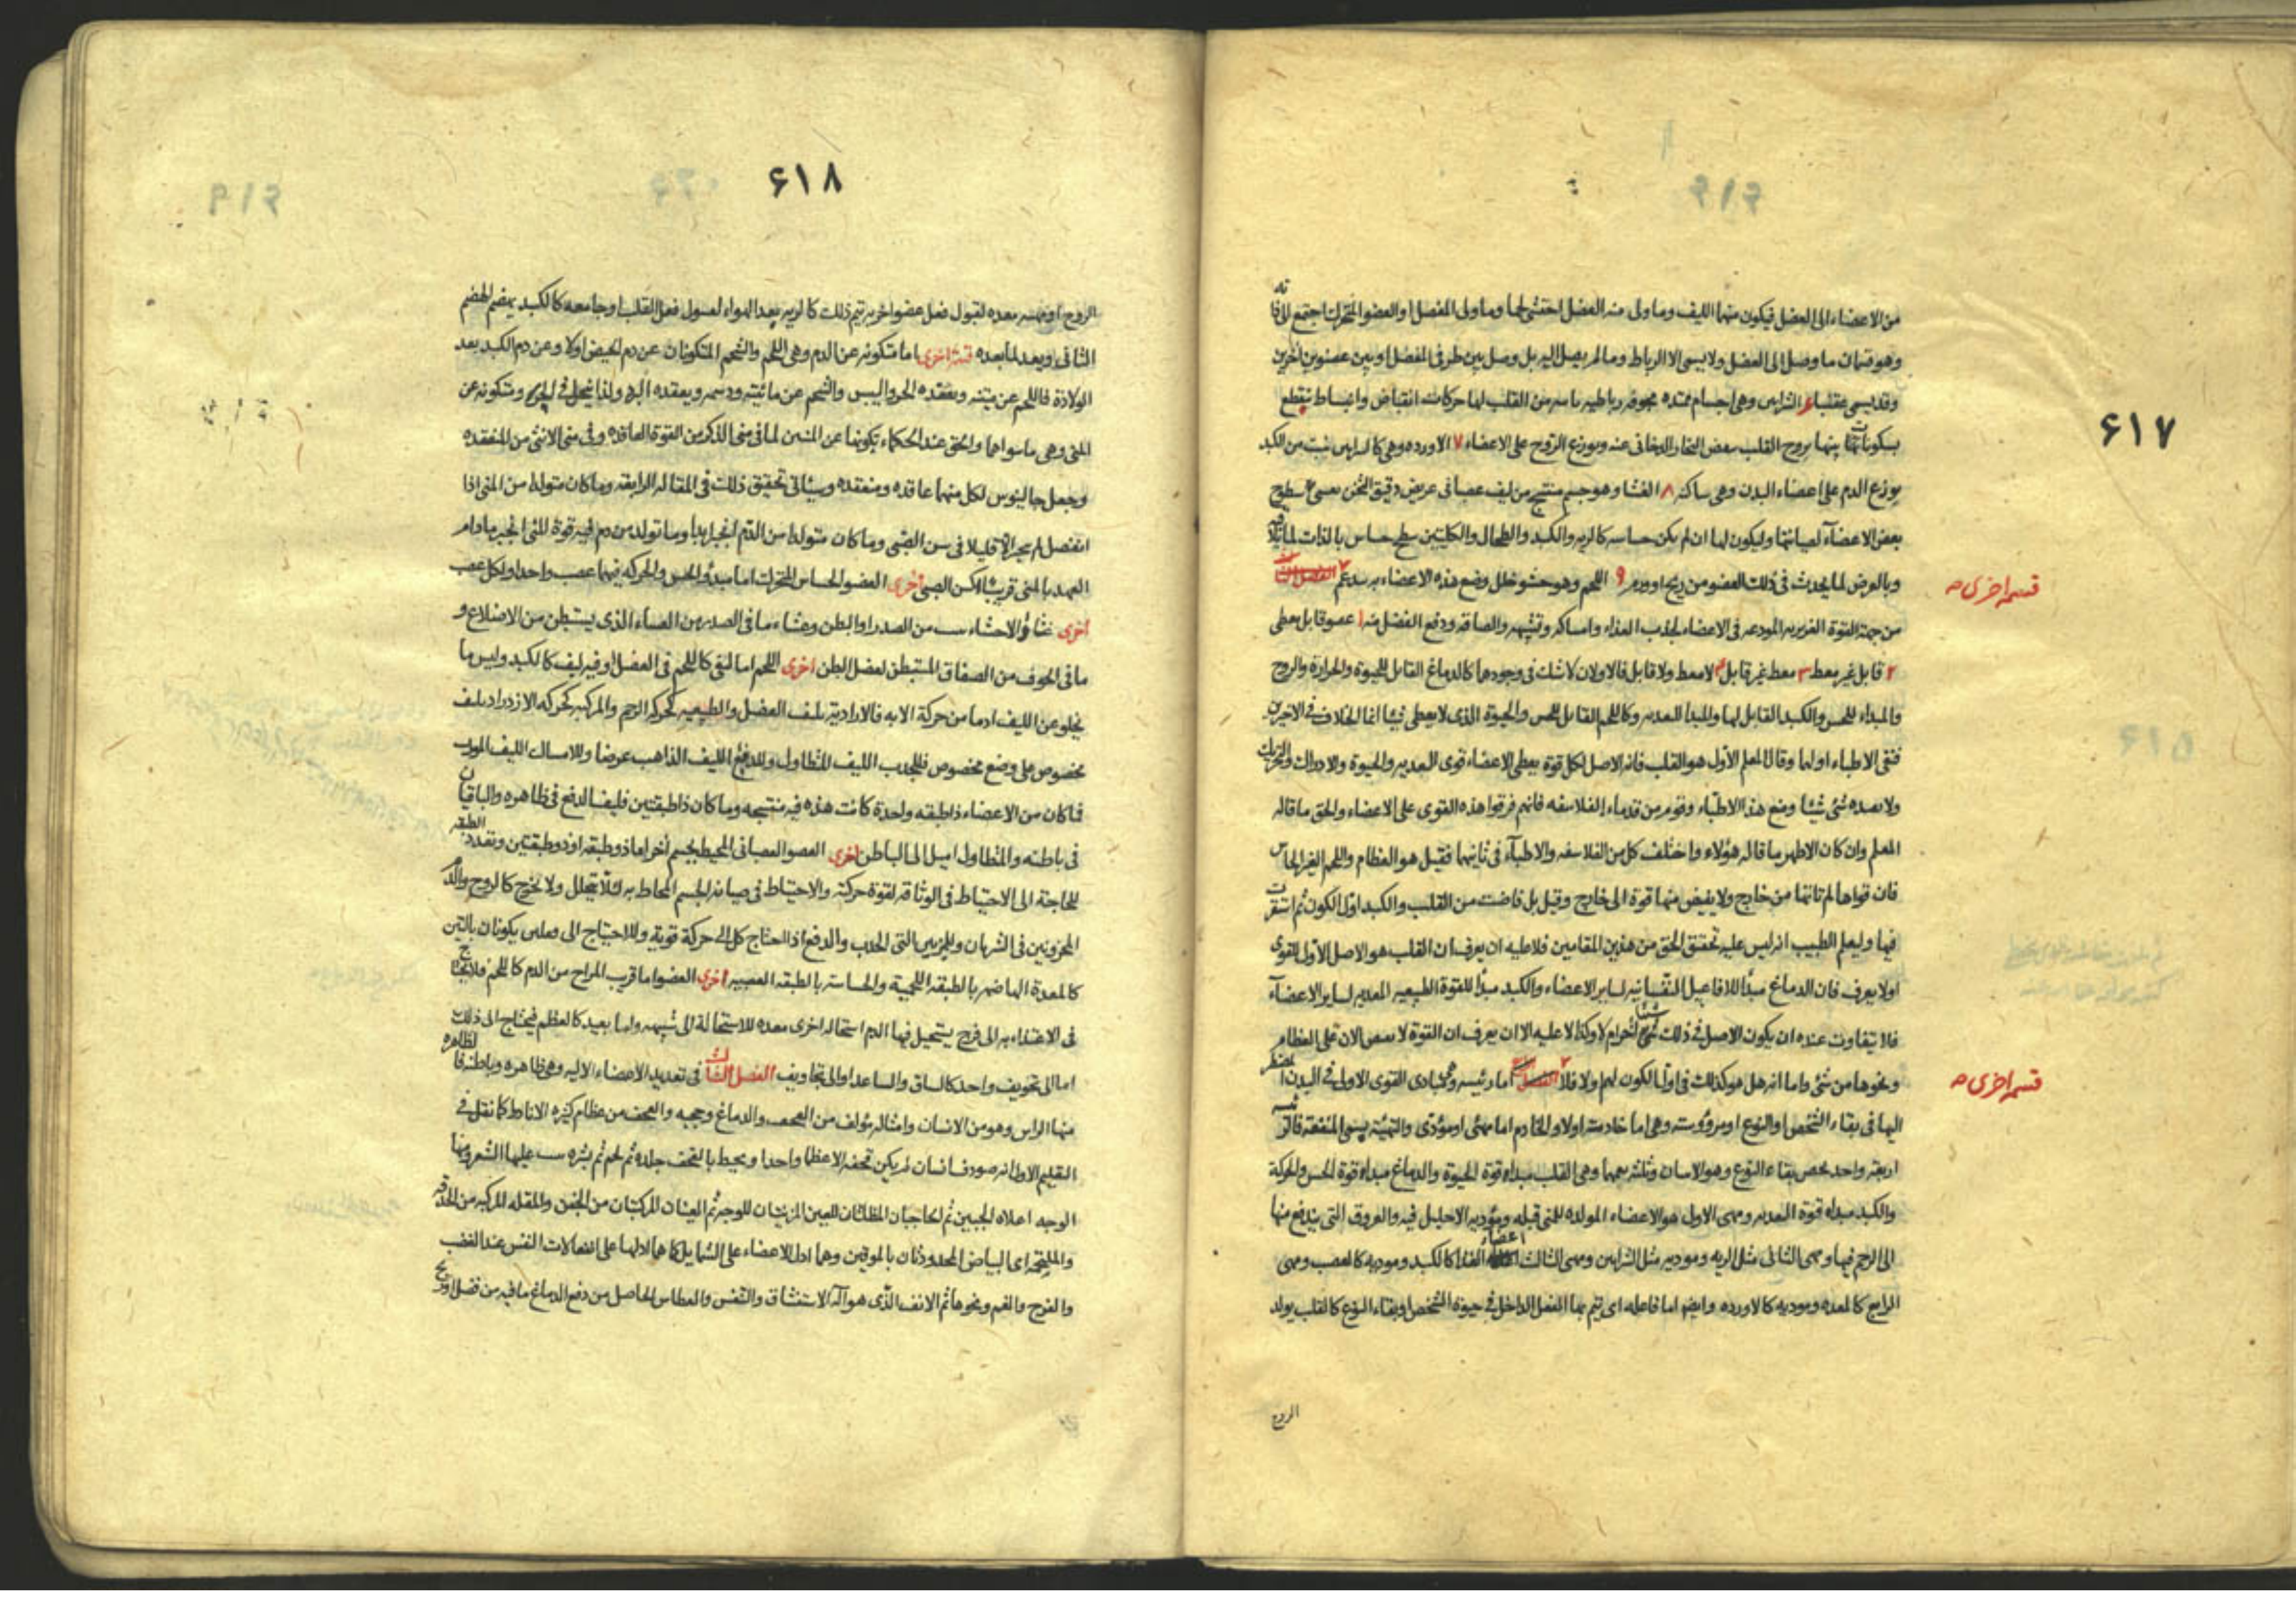 ۶۱۷
من الاعضاء الى العضل فيكون منها الليف وما ولى منه العضل احتشى لحما وما ولى المفصل والعضو المتحرك اجتمع
وهو قسمان ما وصل الى العضل ولا يسمى الا الرباط وما لم يصل اليه بل وصل بين طرفى المفصل او بين عضوين اخرين
وقد يسمى عقبا الشرايين وهى اجسام ممتده مجوفه رباطيه من القلب لها حركات انقباض وانبساط
بسكونات بينها يروح القلب بنفض البخار الدخانى عنه ويوزع الروح على الاعضاء ۷ الاورده وهى كالشرايين نبت من الكبد
يوزع الدم على اعضاء البدن وهى ساكنه ۸ الغشا وهو جسم منتسج من ليف عصبانى عريض دقيق الثخن سطوح
بعض الاعضآء لصيانتها وليكون لها ان لم يكن حساسه كالريه والكبد والطحال والكليتين سطح حساس بالذات لما
وبالعرض لما يحدث فى ذلك العضو من ريح او ورم ۹ اللحم وهو حشو خلل وضع هذه الاعضاء
قسمه اخرى
من جهة القوة الغريزيه المودعه فى الاعضاء لجذب الغذاء وامساكه وتشبيهه والصاقه ودفع الفضل منه ۱ عضو قابل معطى
۲ قابل غير معط ۳ معط غير قابل لا معط ولا قابل فالاولان لا شك فى وجودهما كالدماغ القابل للحيوة والحرارة والروح
والمبداء للحس والكبد القابل لها والمبدا للتغذيه وكاللحم القابل للحس والحيوة الذى لا يعطى شيئا انما الخلاف فى الاخيرين
فنفى الاطباء اولهما وقال المعلم الاول هو القلب فانه الاصل لكل قوة يعطى الاعضاء قوى التغذيه والحيوة والادراك
شئ شيئا ومنع هذا الاطبآء وقوم من قدماء الفلاسفه فانهم فرقوا هذه القوى على الاعضاء والحق ما قاله
المعلم وان كان الاظهر ما قاله هؤلاء واختلف كل من الفلاسفه والاطبآء فى ثانيهما فقيل هو العظام واللحم الغير الحاس
فان قواها لم تاتها من خارج ولا يفيض منها قوة الى خارج وقيل بل فاضت من القلب والكبد اول الكون ثم استقرت
فيها وليعلم الطبيب انه ليس عليه تحقيق الحق من هذين المقامين فلا عليه ان يعرف ان القلب هو الاصل الاول للقوى
اولا يعرف فان الدماغ مبدأ للافاعيل النفسانيه لساير الاعضاء والكبد مبدأ للقوة الطبيعيه المغذيه لساير الاعضآء
فلا يتفاوت عنده ان يكون الاصل فى ذلك شيئا اخر ام لا وكذا لا عليه الا ان يعرف ان القوة الان على العظام
ونحوها من شئ واما انه هل هو كذلك فى اول الكون لهم ولا فلا اما رئيسه وهى مبادى القوى الاولى فى البدن
قسمه اخرى
اليها فى بقاء الشخص او النوع او مرؤوسته وهى اما خادمته اولا والخادم اما مهيئ او مؤدى والتهيئة يسمى المنفعة
اربعة واحد يخص بقاء النوع وهو وثلثه وهى القلب مبداء قوة الحيوة والدماغ مبداء قوة الحس والحركة
والكبد مبداء قوة التغذيه ومهيئ الاول هو الاعضاء المولده للمنى قبله ومؤديه الاحليل فيه والعروق التى يندفع منها
الى الرحم فيها ومهيئ الثانى مثل الريه ومؤديه مثل الشرايين ومهيئ الثالث اعضاء الغذا كالكبد ومؤديه كالعصب ومهيئ
الرابع كالمعده ومؤديه كالاورده وايضا اما فاعله اى يتم بها الفعل الداخل فى حيوة الشخص او بقاء النوع كالقلب يولد
الروح
۶۱۸
الروح او لقبول فعل عضو اخر به يتم ذلك كالريه يعد الهواء لقبول فعل القلب او جامعه كالكبد يهضم الهضم
الثانى ويعد لما بعده قسمة اخرى اما متكونه عن الدم وهى اللحم والشحم المتكونان عن دم الحيض اولا وعن دم الكبد بعد
الولادة فاللحم عن متينه ويعقده الحر واليبس والشحم عن مائيته ودسمه ويعقده البرد ولذا ينحل فى الحر ومتكونه عن
المنى وهى ما سواهما والحق عند الحكماء تكونها عن المنيين لما فى منى الذكر من القوة العاقده وفى منى الانثى من المنعقده
وجعل جالينوس لكل منهما عاقده ومنعقده وسيأتى تحقيق ذلك فى المقاله الرابعه وما كان متولدا من المنى اذا
انفصل لم ينجبر الا قليلا فى سن الصبى وما كان متولدا من الدم انجبر ابدا وما تولد من دم فيه قوة المنى انجبر ما دام
العهد بالمنى قريبا كسن الصبى اخرى العضو الحساس المتحرك اما مبدؤ الحس والحركه فيهما عصب واحد او لكل عصب
اخرى غشاؤ الاحشاء من الصدر او البطن وغشاء ما فى الصدر من الغشاء الذى يستبطن من الاضلاع و
ما فى الجوف من الصفاق المستبطن لعضل البطن اخرى اللحم اما ليفى كاللحم فى العضل او فيه ليف كالكبد وليس ما
يخلو عن الليف اما من حركة الا به فالاراديه بليف العضل والطبيعيه كحركه الرحم والمركبه كحركه الازدراد بليف
مخصوص على وضع مخصوص فللجذب الليف المتطاول وللدفع الليف الذاهب عرضا وللامساك الليف المورب
فما كان من الاعضاء ذا طبقه واحدة كانت هذه فيه منتسجه وما كان ذا طبقتين فليف الدفع فى ظاهره والباقيان
فى باطنه والمتطاول اميل الى الباطن اخرى العضو العصبانى المحيط بجسم اخر اما ذو طبقه او ذو طبقتين وتعدد الطبقه
للحاجة الى الاحتياط فى الوثاقه لقوة حركته والاحتياط فى صيانه الجسم المحاط به لئلا يتحلل ولا يخرج كالروح والدم
المخزونين فى الشريان التى الجذب والدفع اذا احتاج كل الى حركة قوية وللاحتياج الى يكونان
كالمعدة الهاضمه بالطبقه اللحمية والحاسة بالطبقه العصبيه اخرى العضو اما قريب المزاج من الدم كاللحم فلا يحتاج
فى الاغتذاء به الى فرج يستحيل فيها الدم استحاله اخرى معده للاستحالة الى شبيهه واما بعيد كالعظم فيحتاج الى ذلك
اما الى تجويف واحد كالساق والساعد او الى تجاويف الفصل الثالث فى تعديد الاعضاء الاليه وهى ظاهره وباطنه فالظاهره
منها الراس وهو من الانسان وامثاله مؤلف من القحف والدماغ وحجبه والقحف من عظام كثيره الا نادرا كما نقل فى
الاقليم انسان لم يكن قحفه الا عظما واحدا ويحيط بالقحف جلده ثم لحم ثم بشره عليها الشعر ومنها
الوجه اعلاه الجبين ثم الحاجبان المظلتان للعين المزينتان للوجه ثم العينان المركبتان من الجفن والمقله المركبه من الحدقه
والملتحمة اى البياض المحدودتان بالموقين وهما ادل الاعضاء على الشمايل كما هما ادلها على انفعالات النفس عند الغضب
والفرح والغم ونحوها ثم الانف الذى هو آلة الاستنشاق والتنفس والعطاس الحاصل من دفع الدماغ ما فيه من فضل او ريح